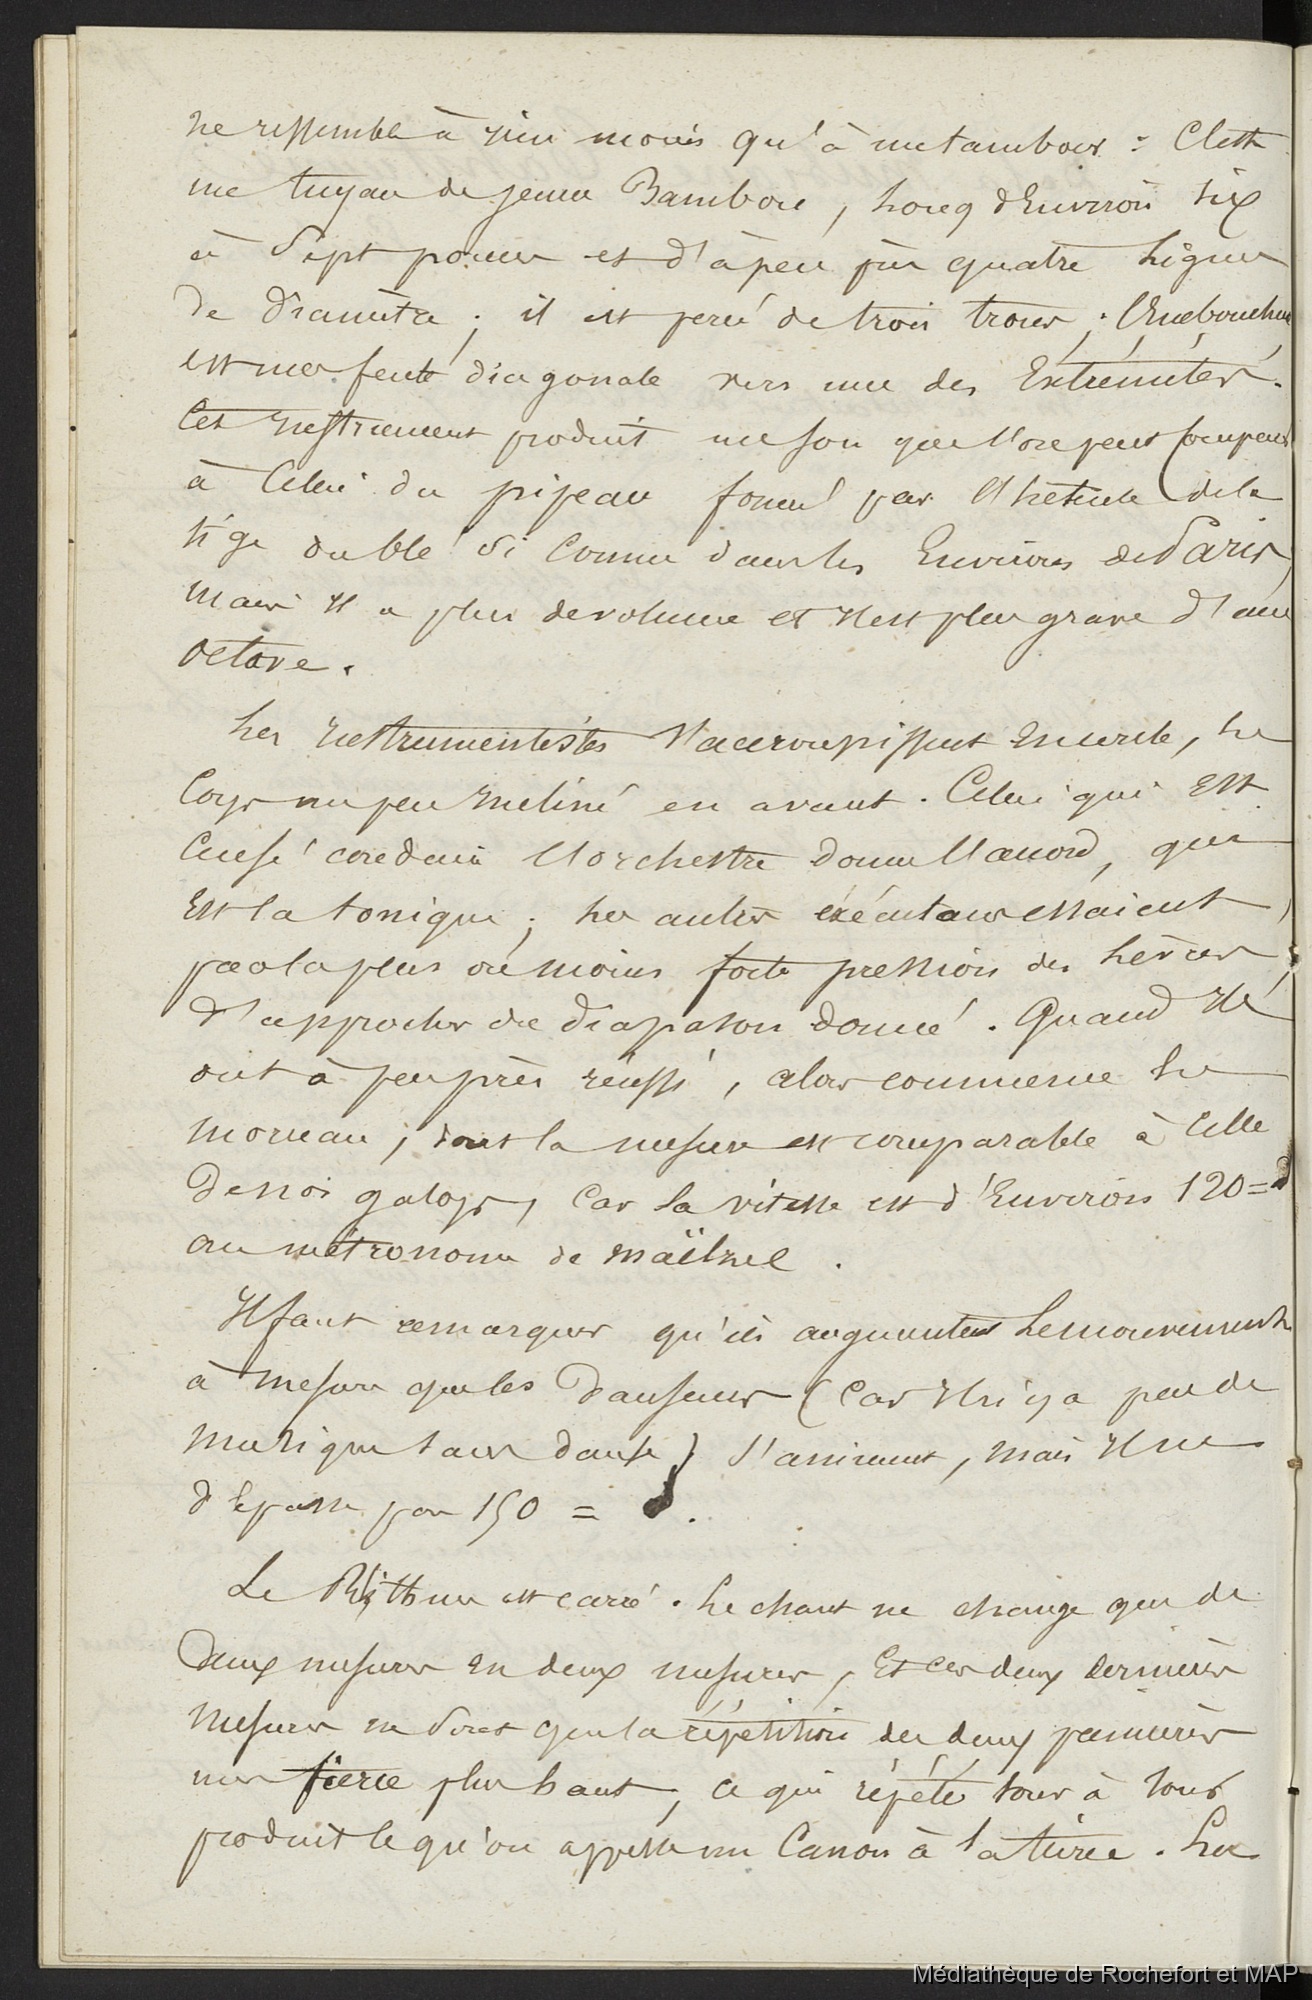 ne ressemble à rien moins qu'à un tambour : C'est
un tuyau de jeune Bambou, long d'Environ six
à Sept pouces et d'à peu près quatre lignes
de diamètre ; il est percé de trois trous ; l'Embouchure
est une fente diagonale vers une des Extrémités.
Cet Instrument produit un son que l'on peut comparer
à Celui du pipeau formé par de la
tige du blé si connu dans les Environs de Paris,
mais il a plus de volume et il est plus grave d'une
octave.
Les Instrumentistes s'accroupissent En cercle, le
Corps un peu Incliné en avant. Celui qui Est
Censé conduire l'orchestre donne l'accord, qui
Est la tonique ; les autres exécutans essaient,
par la plus ou moins forte pression des lèvres,
d'approcher du diapason donné. Quand Ils
ont à peu près réussi, alors commence le
morceau, dont la mesure est comparable à Celle
de nos galops, Car la vitesse est d'Environ 120=♩
au métronome de maëlzel.
Il faut remarquer qu'ils augmentent le mouvement
à mesure que les danseurs (Car Il n'y a peu de
musique sans danse) s'animent, mais Il ne
dépasse pas 150 = ♩.
Le Rhithme est carré. Le chant ne change que de
deux mesures en deux mesures, Et ces deux dernières
mesures ne sont que la répétition des deux premières
une tierce plus haut, ce qui répété tour à tour
produit ce qu'on appelle un Canon à la tierce. Les